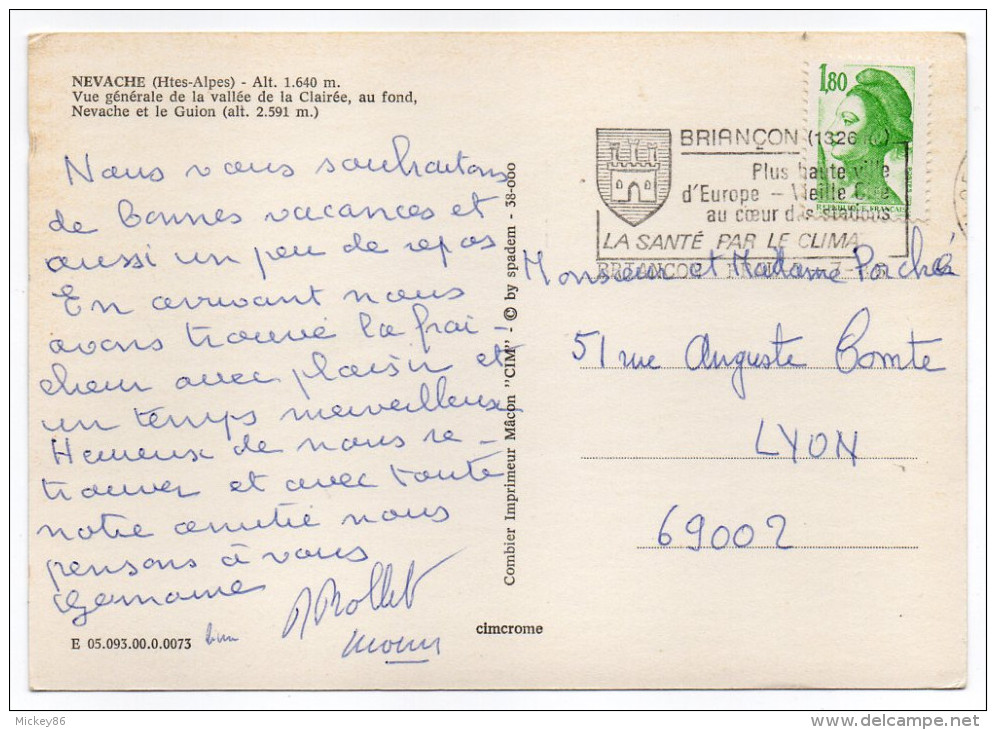 NEVACHE (Htes-Alpes) - Alt. 1.640 m.
Vue générale de la vallée de la Clairée, au fond,
Nevache et le Guion (alt. 2.591 m.)
Nous vous souhaitons
de bonnes vacances et
aussi un peu de repos
En arrivant nous
avons trouvé la fraî-
cheur avec plaisir et
un temps merveilleux
Heureux de nous re-
trouver et avec toute
notre amitié nous
pensons à vous
Germaine
Rollet
E 05.093.00.0.0073
cimcrome
Combier Imprimeur Mâcon "CIM" - © by spadem - 38-000
1,80
BRIANÇON (1326
Plus haute ville
d'Europe - Vieille Cité
au cœur des stations
LA SANTÉ PAR LE CLIMA
Monsieur et Madame Porché
51 rue Auguste Comte
LYON
69002
Mickey86
www.delcampe.net